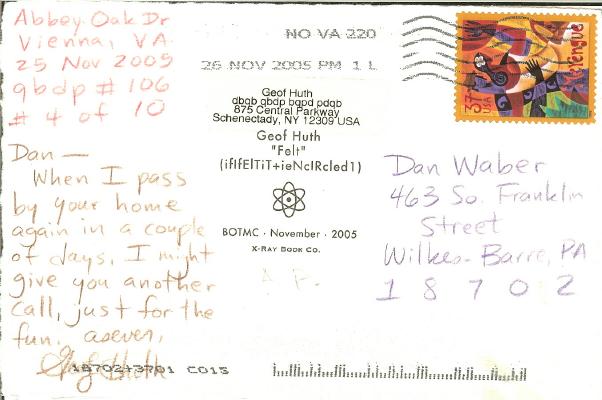 Abbey Oak Dr
Vienna, VA
25 Nov 2005
qbdp # 106
# 4 of 10
Dan —
When I pass
by your home
again in a couple
of days, I might
give you another
call, just for the
fun. asever,
Geof Huth
18702+3701 C015
NO VA 220
26 NOV 2005 PM 1 L
Geof Huth
dbqb qbdp bqpd pdqb
875 Central Parkway
Schenectady, NY 12309 USA
Geof Huth
"Felt"
(ifIfElTiT+ieNcIRcled1)
BOTMC · November · 2005
X-Ray Book Co.
37
USA
Dan Waber
463 So. Franklin
Street
Wilkes-Barre, PA
18702